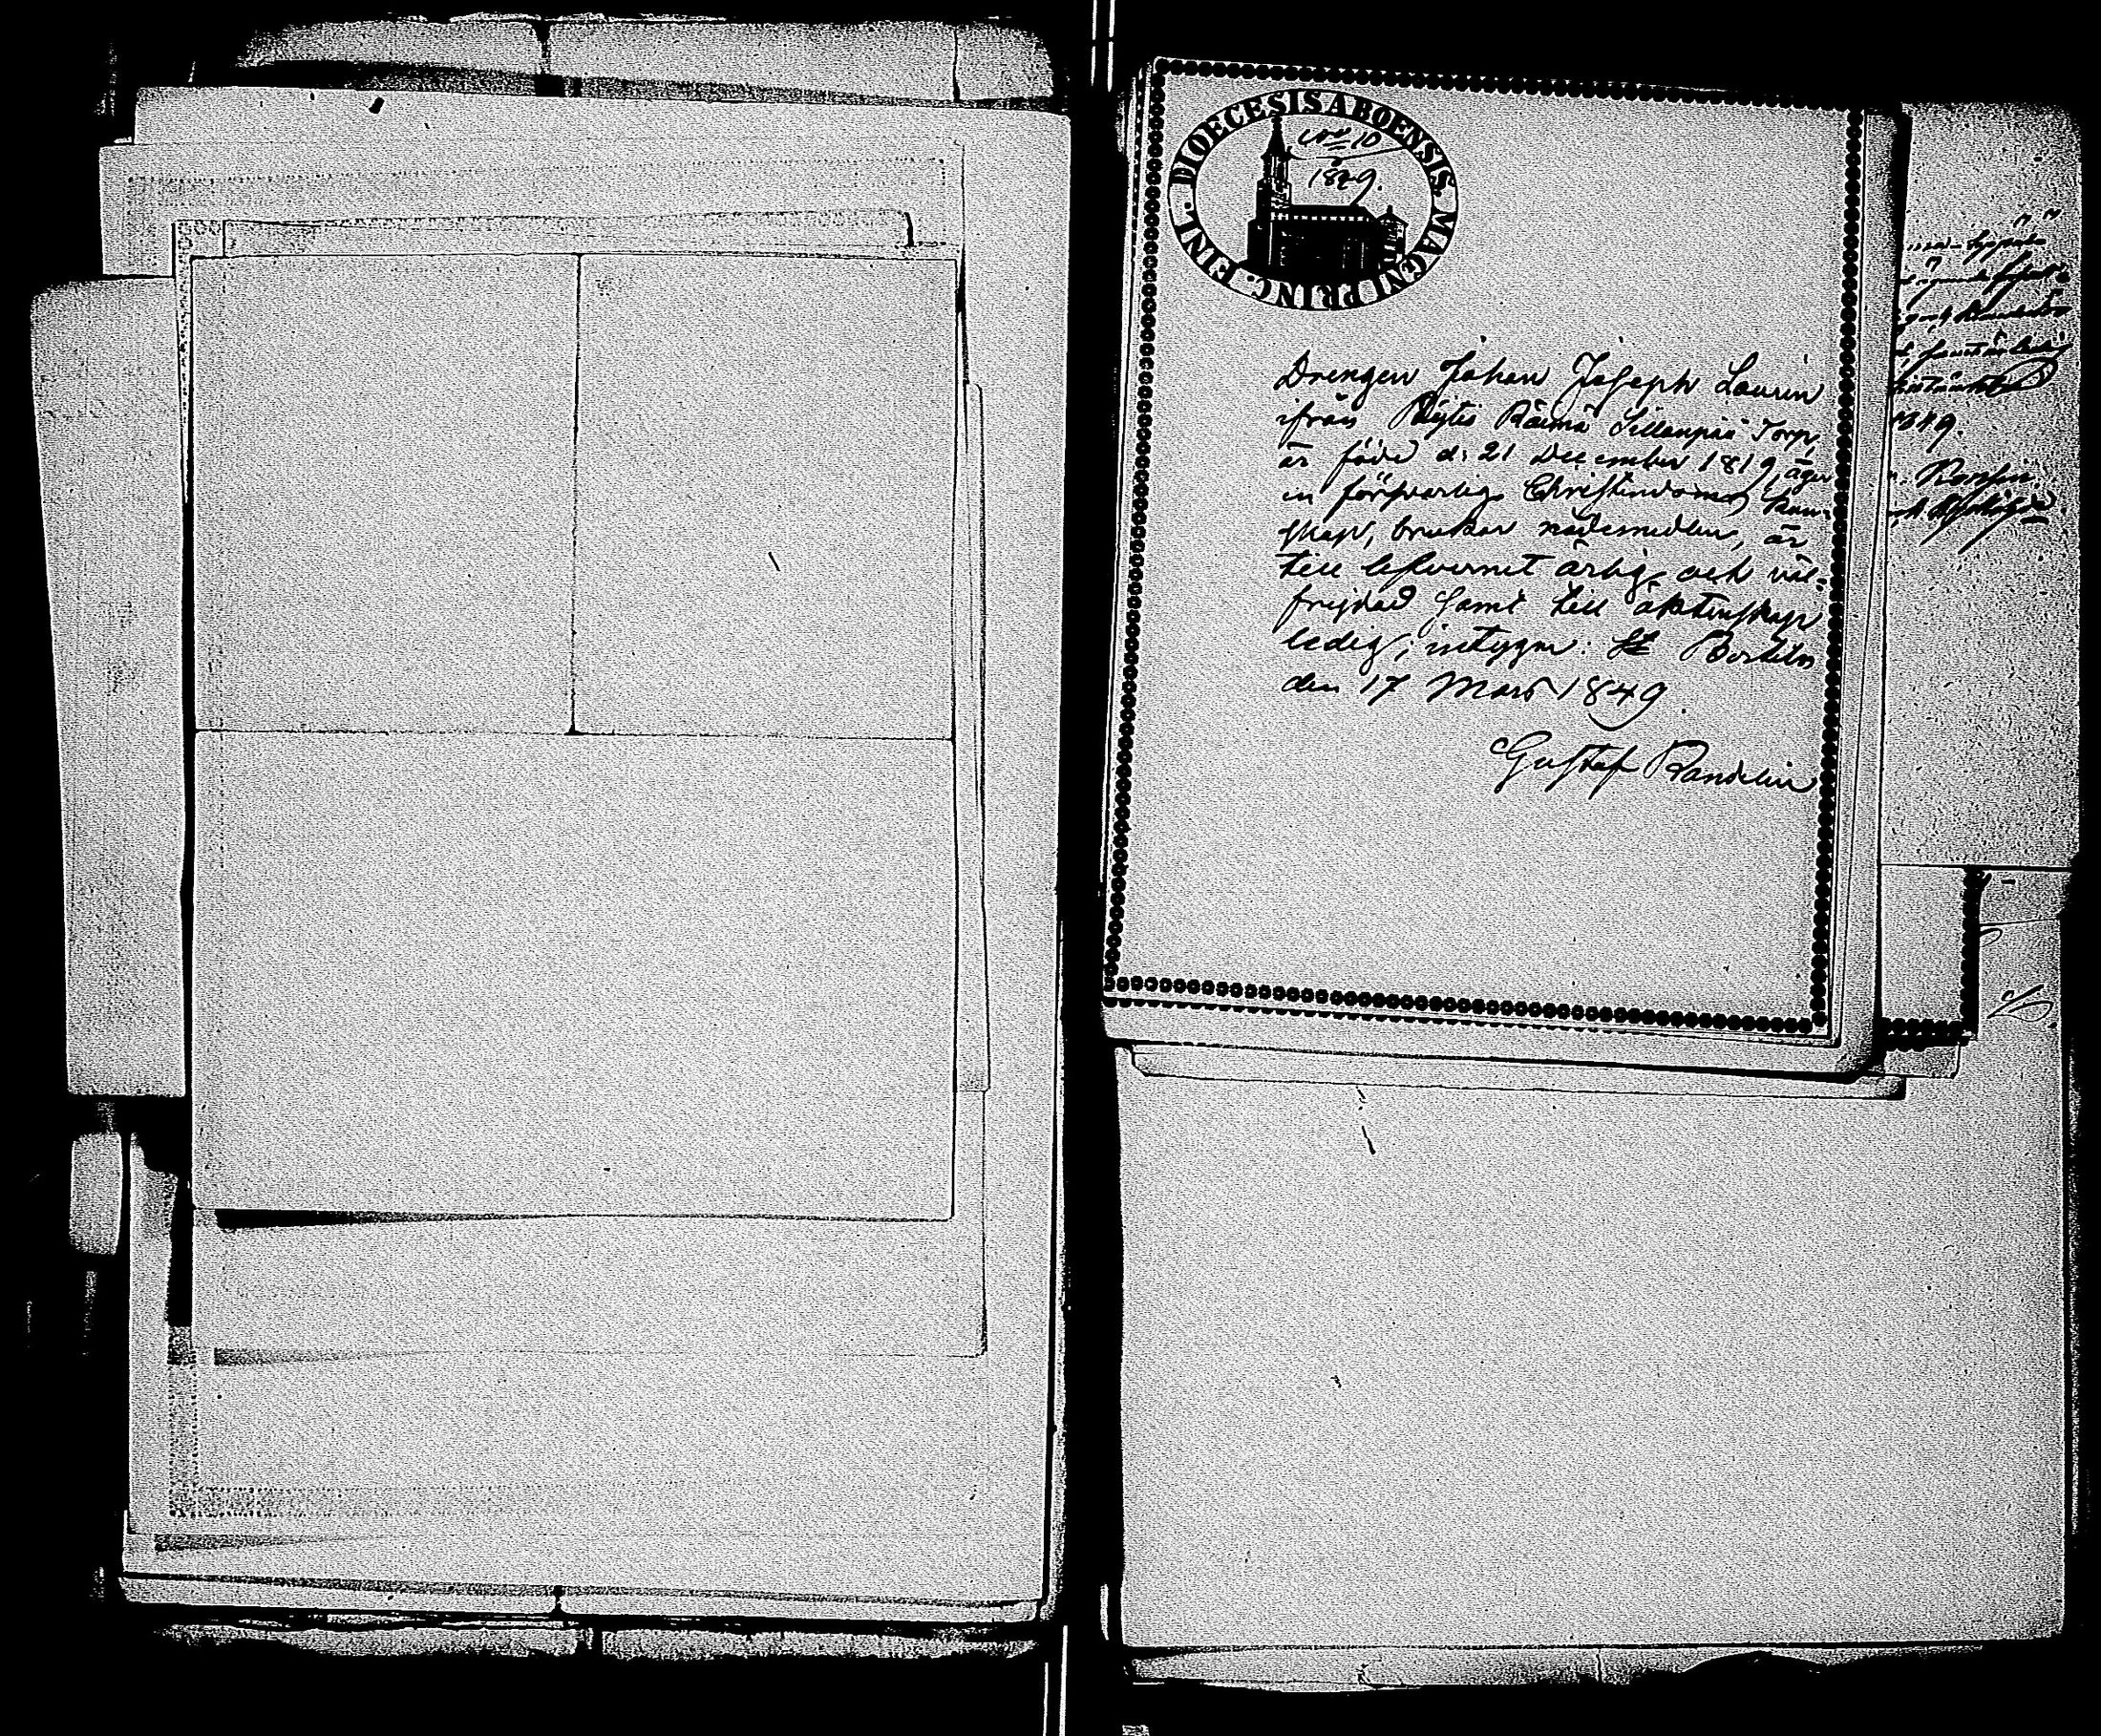 DIOECESIS ABOENSIS MAGNI PRINC. FINL.
No 10
1849.
Drengen Johan Joseph Laurin
ifrån Pöytis Raima Sillanpää Torp,
är född d. 21 December 1819, äger
en försvarlig Christendoms kun-
skap, brukar nådemedlen, är
till lefvernet ärlig och väl-
frejdad samt till äktenskap
ledig; intygar: St Bertils
den 17 Mars 1849.
Gustaf Randelin
1849.